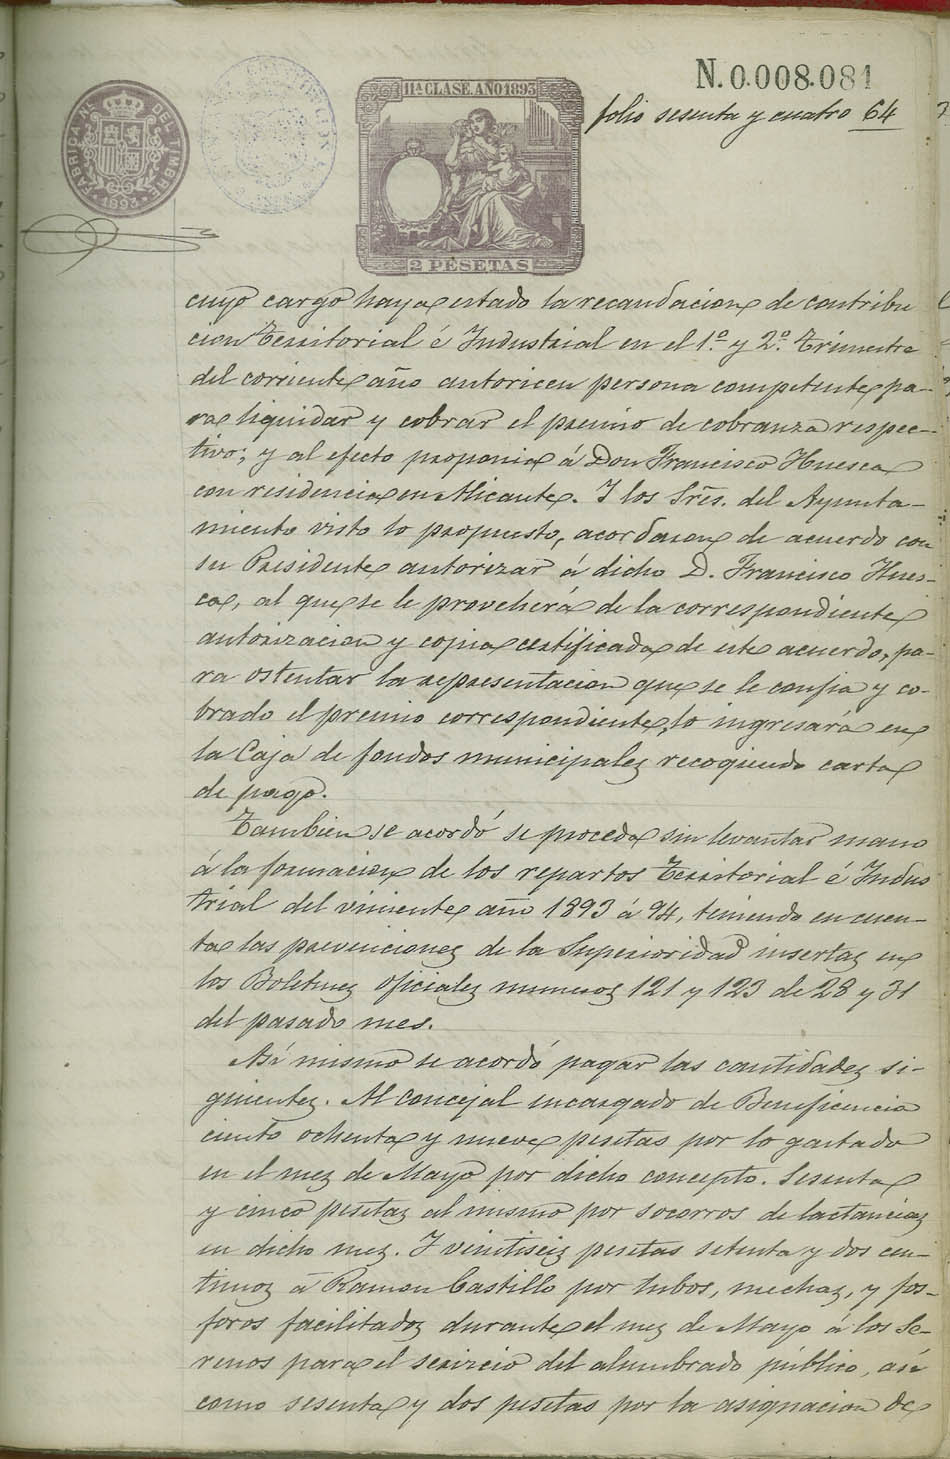 N.0.008.081
11ª CLASE. AÑO 1893
FABRICA NAL DEL TIMBRE
1893
2 PESETAS
folio sesenta y cuatro 64
cuyo cargo haya estado la recaudacion de contribu
cion Territorial é Industrial en el 1º. y 2º. trimestre
del corriente año autoricen persona competente pa-
ra liquidar y cobrar el premio de cobranza respec-
tivo; y al efecto proponia á Don Francisco Huesca
con residencia en Alicante. Y los Sres. del Ayunta-
miento visto lo propuesto, acordaron de acuerdo con
su Presidente autorizar á dicho D. Francisco Hues-
ca, al que se le proveherá de la correspondiente
autorizacion y copia certificada de este acuerdo, pa-
ra ostentar la representacion que se le confia y co-
brado el premio correspondiente, lo ingresará en
la Caja de fondos municipales recogiendo carta
de pago.
Tambien se acordó se proceda sin levantar mano
á la formacion de los repartos Territorial é Indus
trial del viniente año 1893 á 94, teniendo en cuen-
ta las prevenciones de la Superioridad insertas en
los Boletines oficiales numeros 121 y 123 de 28 y 31
del pasado mes.
Asi mismo se acordó pagar las cantidades si-
guientes. Al Concejal encargado de Beneficencia
ciento ochenta y nueve pesetas por lo gastado
en el mes de Mayo por dicho concepto. Sesenta
y cinco pesetas al mismo por socorros de lactancias
en dicho mes. Y veintiseis pesetas setenta y dos cen-
timos á Ramon Castillo por tubos, mechas, y fos-
foros facilitados durante el mes de Mayo á los Se-
renos para el servicio del alumbrado público, asi
como sesenta y dos pesetas por la asignacion de